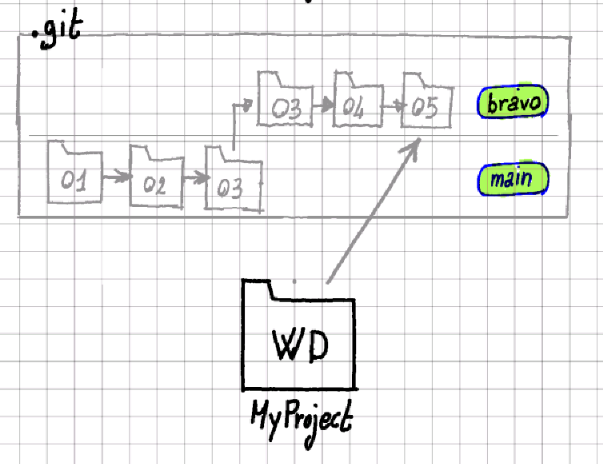 .git
03 04 05 bravo
01 02 03 main
WD
MyProject